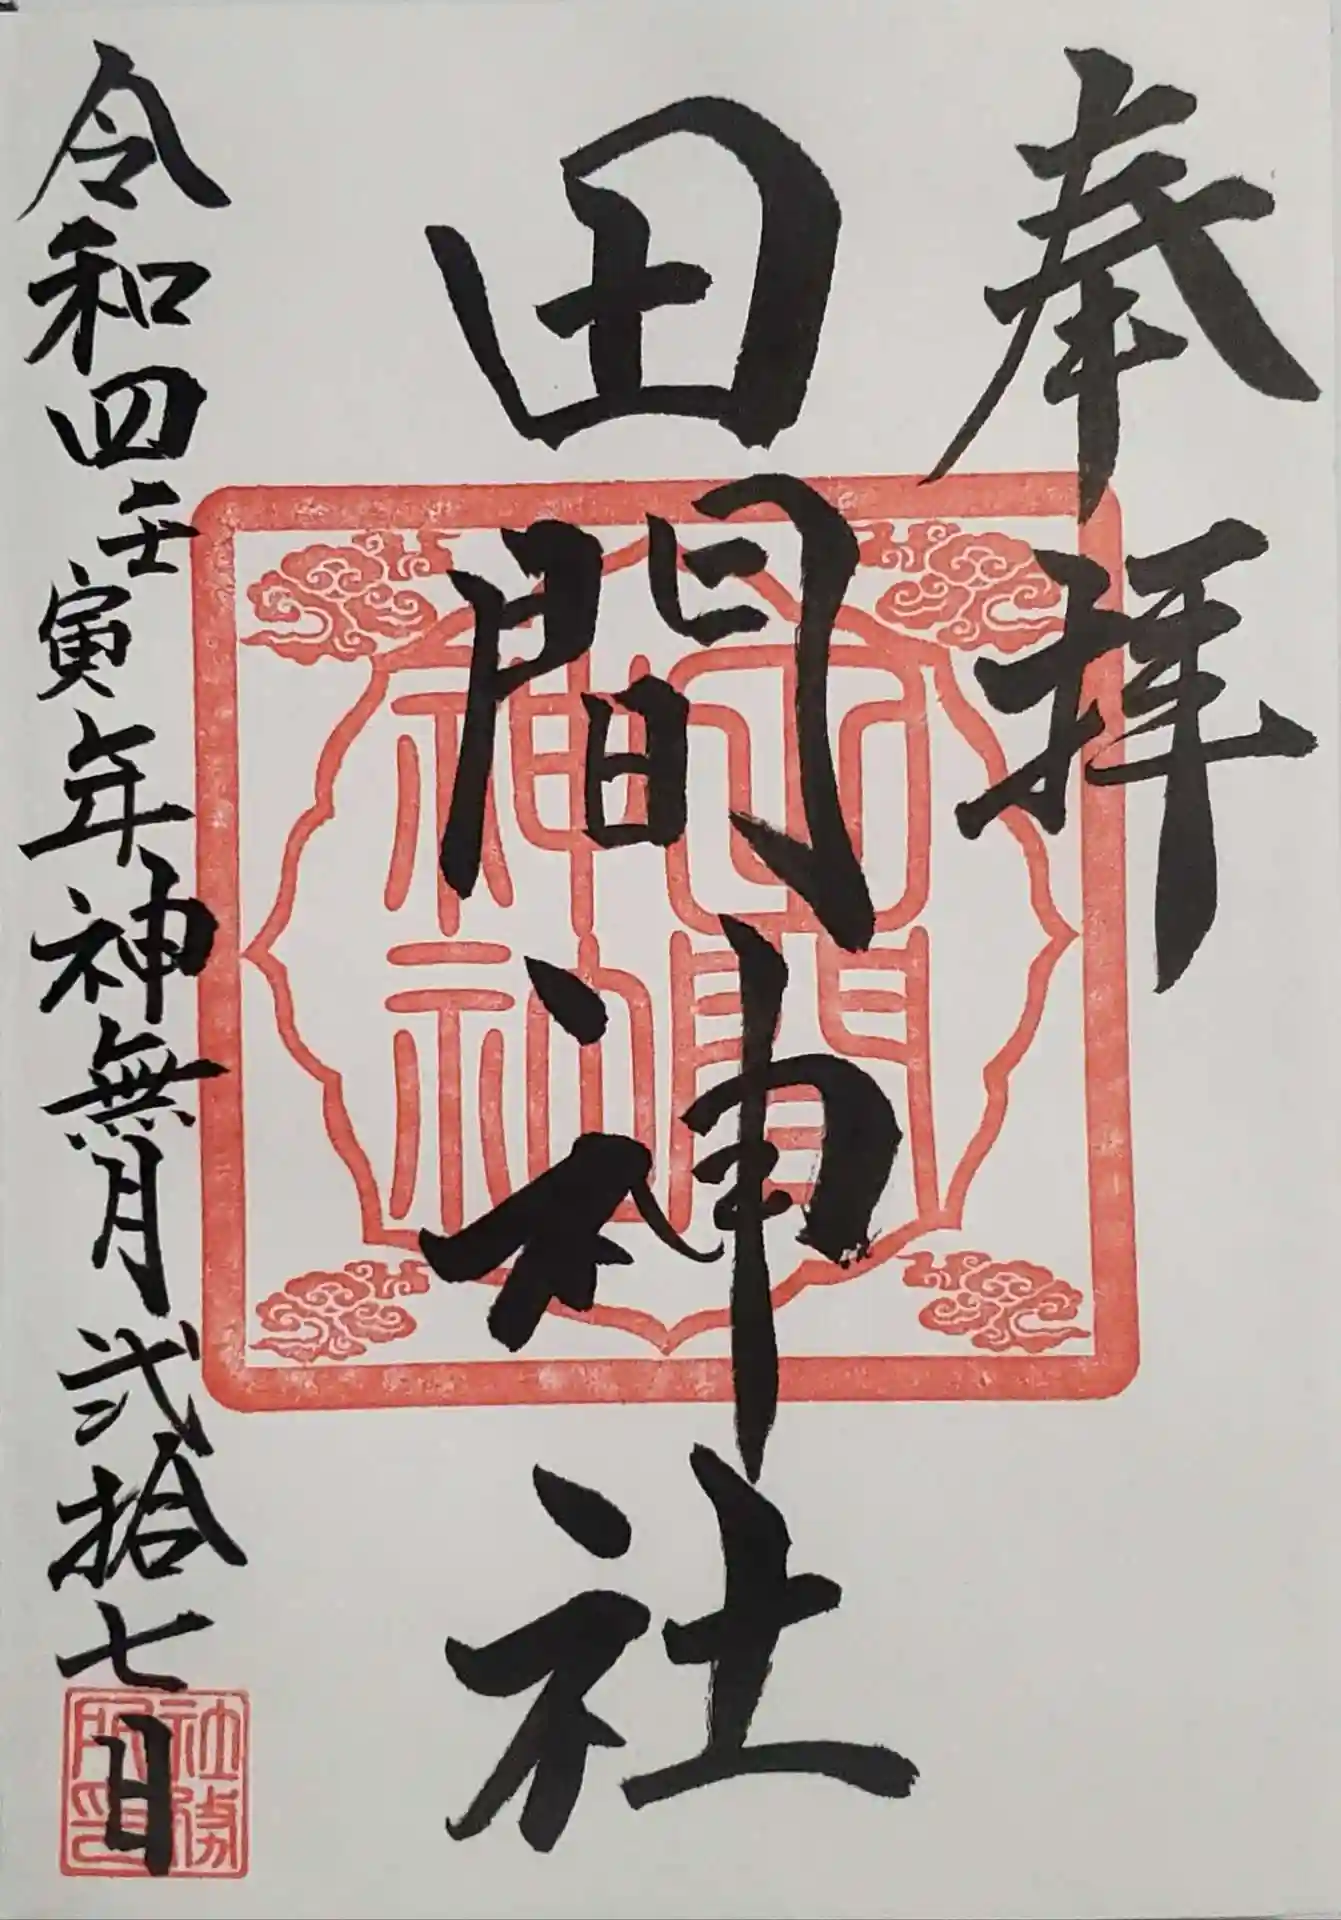 奉拝
田間神社
田間神社
令和四壬寅年神無月弐拾七日
社務所印